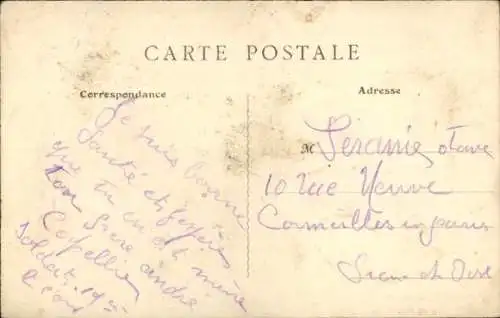 CARTE POSTALE
Correspondance
Adresse
Je suis bonne
Santé et j'espère
que tu en est même
Ton frère andré
Capellier
Soldat 19
M
10 Rue Neuve
Cormeilles en paris
Seine et Oise